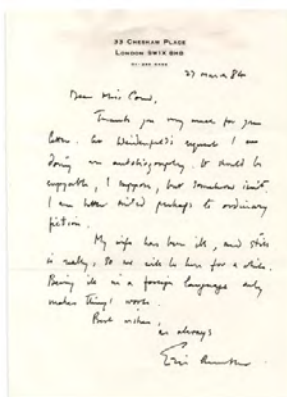 33 CHESHAM PLACE
LONDON SW1X 8HB
27 March 84
Dear Miss
Thank you very much for your
letter. At Weidenfeld's request I am
doing an autobiography. It should be
enjoyable, I suppose, but somehow isn't.
I am better suited perhaps to ordinary
fiction.
My wife has been ill, and still
is really, so we will be here for a while.
Being ill in a foreign language only
makes things worse.
Best wishes,
as always
Eric